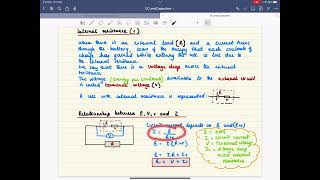 DC and Capacitors
Internal resistance (r)
When there is an external load (R) and a current flows
through the battery, some of the energy that each coulomb of
charge has gained while entering the cell is lost due to
the internal resistance.
We say that there is a voltage drop across the internal
resistance.
The voltage (energy per coulomb) available to the external circuit
is called terminal voltage (V).
A cell with internal resistance is represented:
Relationship between E, V, r and I
Circuit current depends on R and
E = I (R + r)
E = IR + Ir
E = V + Ir
E = emf
I = circuit current
V = Terminal voltage
Ir = voltage drop
across internal
resistance